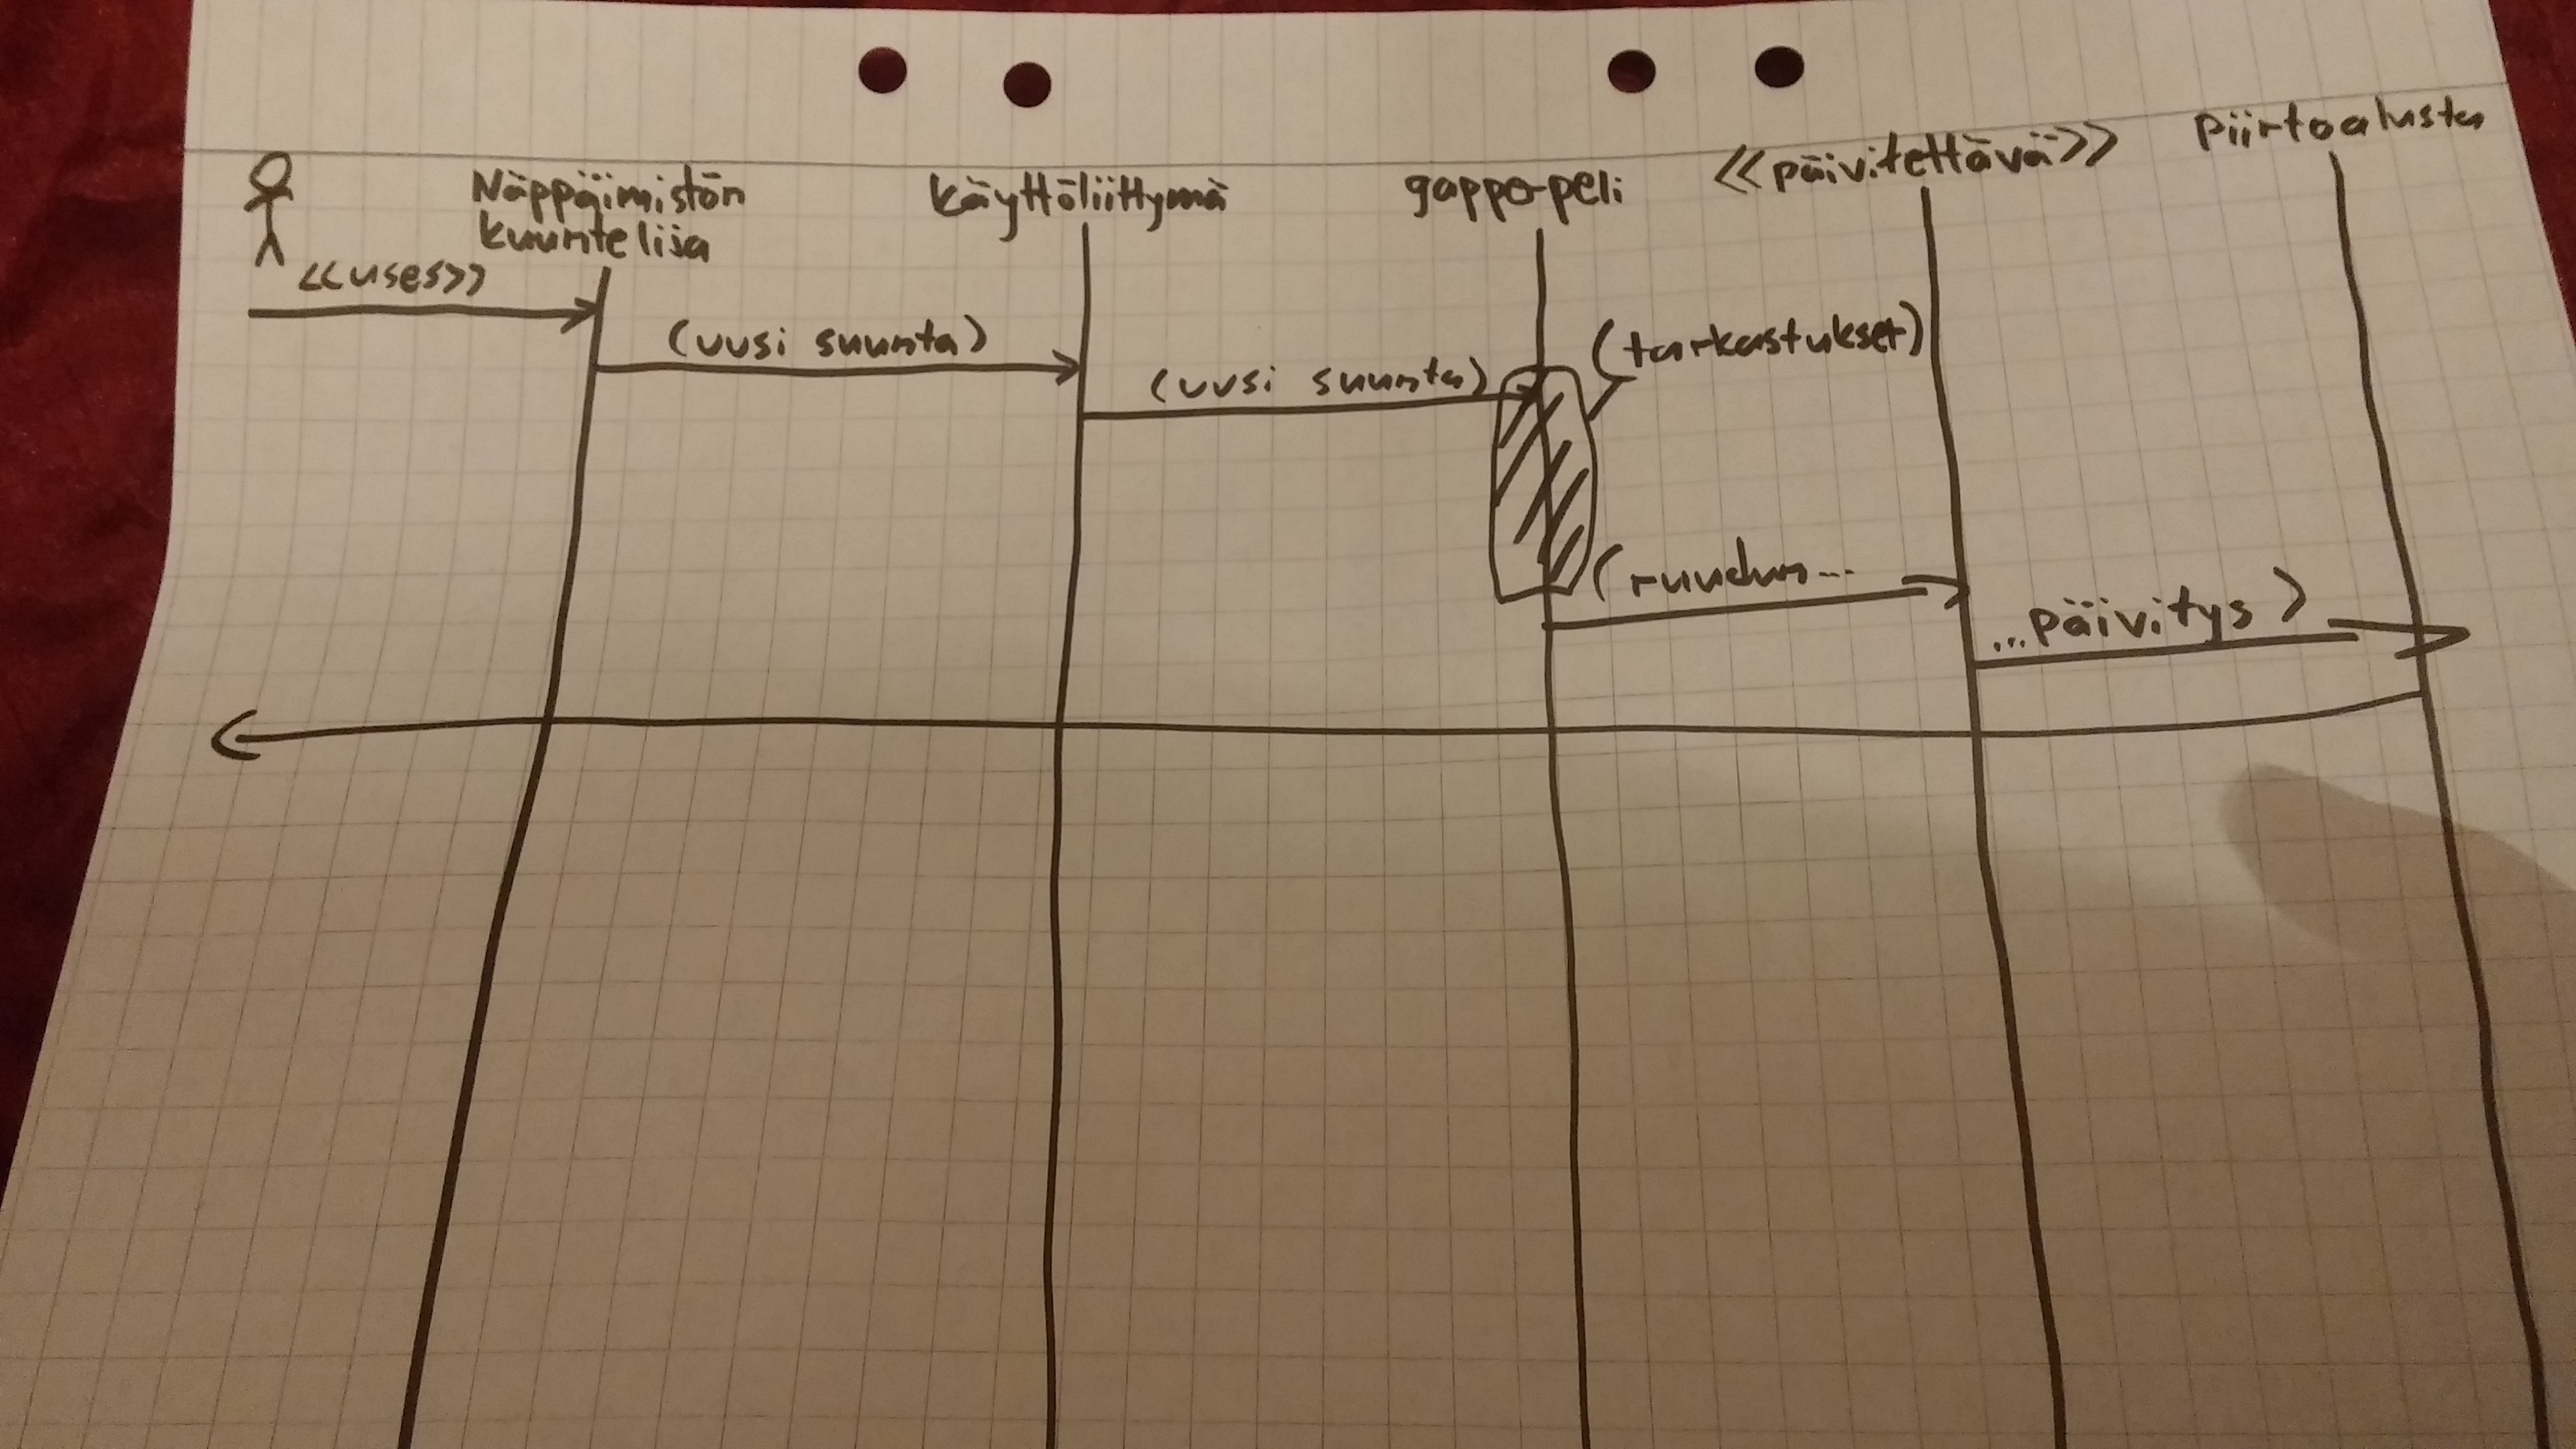 Näppäimistön
kuuntelija
käyttöliittymä
gappo-peli
<<päivitettävä>>
Piirtoalusta
<<uses>>
(uusi suunta)
(uusi suunta)
(tarkastukset)
(ruudun...
...päivitys)